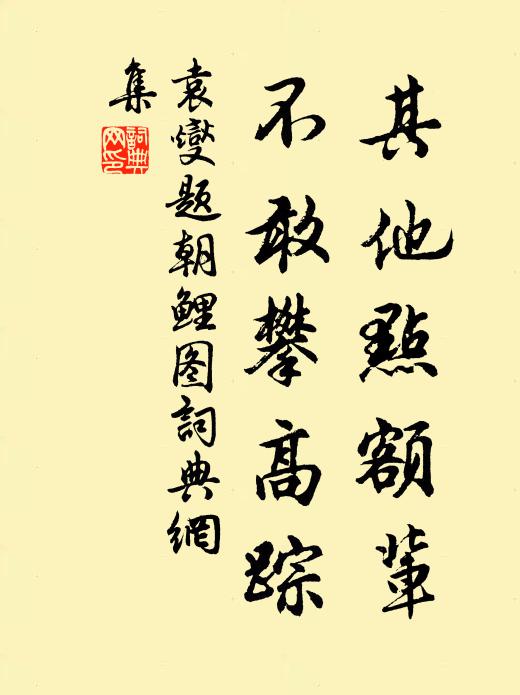 其他點額輩
不敢攀高踪
袁燮題朝鯉图詞典網
集
詞典网印